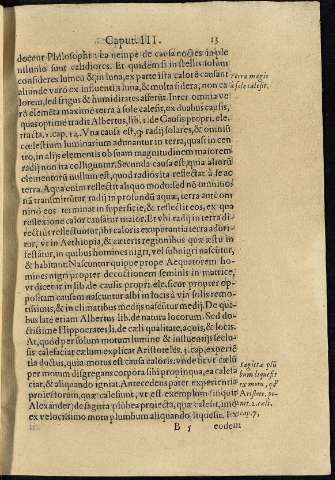 Caput. III. 13
docent Philosophi: ea nempe de causa noctes in ple
nilunio sunt calidiores. Et quidem si in stellis solùm
consideres lumen & in luna, ex parte ista calorē causant
aliunde varò ex influentia luna, & multa sidera, non ca
lorem, sed frigus & humiditates afferūt. Inter omnia ve
rò elemēta maximè terra à sole calesit, ex duabus causis,
quas optime tradit Albertus, lib. 1. de Causis propri. ele.
tracta. 1. cap. 14. Vna causa est, q radij solares, & omniū
cœlestium luminarium adunantur in terra, quasi in cen
tro, in alijs elementis ob suam magnitudinem maiorem
radij non ita colliguntur. Secunda causa est, quia aliorū
elementorū nullum est, quod radios ita reflectāt à se ac
terra. Aqua enim reflectit aliquo modo: sed nō omninò
nā transmittūtur radij in profundū aquæ, terra antè om
ninò eos terminat in superficie, & reflectit eos, ex qua
reflexione calor causatur maior. Et vbi radij in terra di
rectius reflectuntur, ibi caloris exuperantia terra adori-
tur, vt in Aethiopia, & cæteris regionibus quæ æstu in
festātur, in quibus homines nigri, vel subnigri nascūtur,
& habitant: Nascuntur quippe prope Aequatorem ho-
mines nigri propter decoctionem seminis in matrice,
vt dicetur in lib. de causis propri. ele. sicut propter op-
positam causam nascuntur albi in locis à via solis remo-
tissimis, & in climatibus medijs nascūtur medij. De qui-
bus latè etiam Albertus lib. de natura locorum. Sed do-
ctissimè Hippocrates li. de cœli qualitate, aquis, & locis.
At, quòd per solum motum lumine & influentijs seclu-
sis calefaciat cælum explicat Aristoteles. 3. cap, experiē
tia ductus, quia motus est causa caloris: vnde breve cælū
per motum disgregans corpora sibi propinqua, ea calefa
ciat, & aliquando igniat. Antecedens patet experientia
proiectorum, quæ calescunt, vt est exemplum (inquit
Alexander) de sagitta plūbea proiecta, quæ calesit, imò
ex velocissimo motu plumbum aliquando, liquescit. Ex
B 5 eodem
Terra magis
à sole calesit.
Sagittæ plū
bum liquescit
ex motu,
Aristote.
met. 2. cæli.
cap. 7.